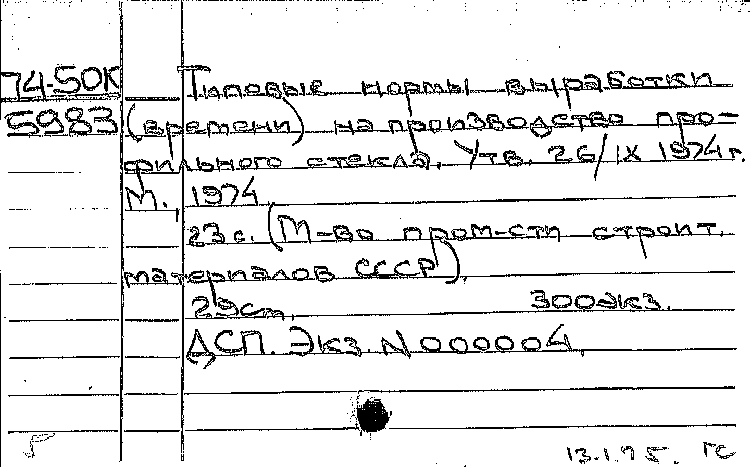 74-50К Типовые нормы выработки
5983 (времени) на производство про-
фильного стекла. Утв. 26/IX 1974г.
М., 1974.
23с. (М-во пром-сти строит.
материалов СССР).
29см. 300экз.
ДСП. Экз. N 000004.
13.1.75. ГС